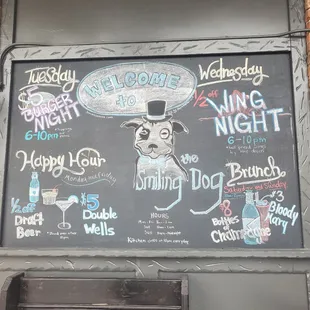 Tuesday
$5
BURGER
NIGHT
6-10pm
WELCOME
to
the
Smiling Dog
Wednesday
1/2 off
WING
NIGHT
6-10pm
Happy Hour
Monday and Friday
1/2 off
Draft
Beer
$5
Double
Wells
HOURS
Brunch
Saturday and Sunday
$8
Bottles of
Champagne
$3
Bloody
Mary